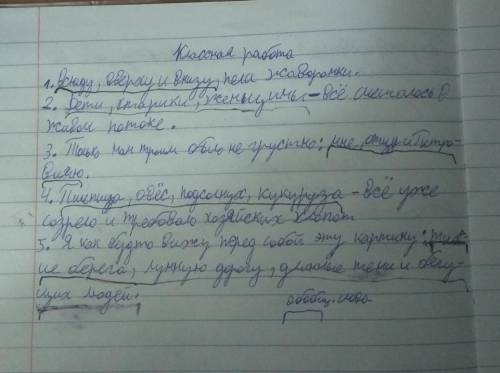 Классная работа
1. Всюду, вверху и внизу, пели жаворонки.
2. Дети, старики, женщины – всё смешалось в
живом потоке.
3. Только нам троим было не грустно: мне, отцу и Петро-
вичу.
4. Пшеница, овёс, подсолнух, кукуруза – всё уже
созрело и требовало хозяйских хлопот
5. Я как будто вижу перед собой эту картину:
ие берега, лунную дорогу, длинные тени и бегу-
щих людей.
обобщ. слова